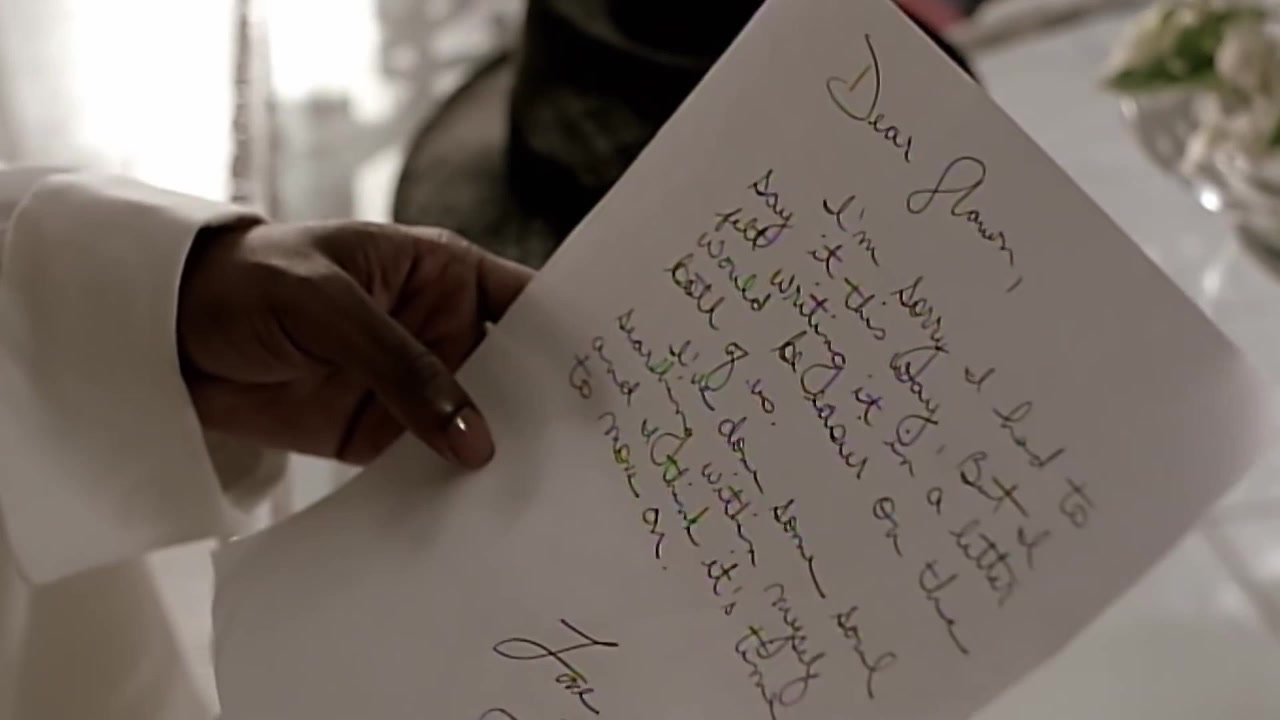 Dear Shawn,
I'm sorry I had to
say it this way. But I
felt writing it in a letter
would be easier on the
both of us.
I've done some soul
searching within myself
and I think it's time
to move on.
Love